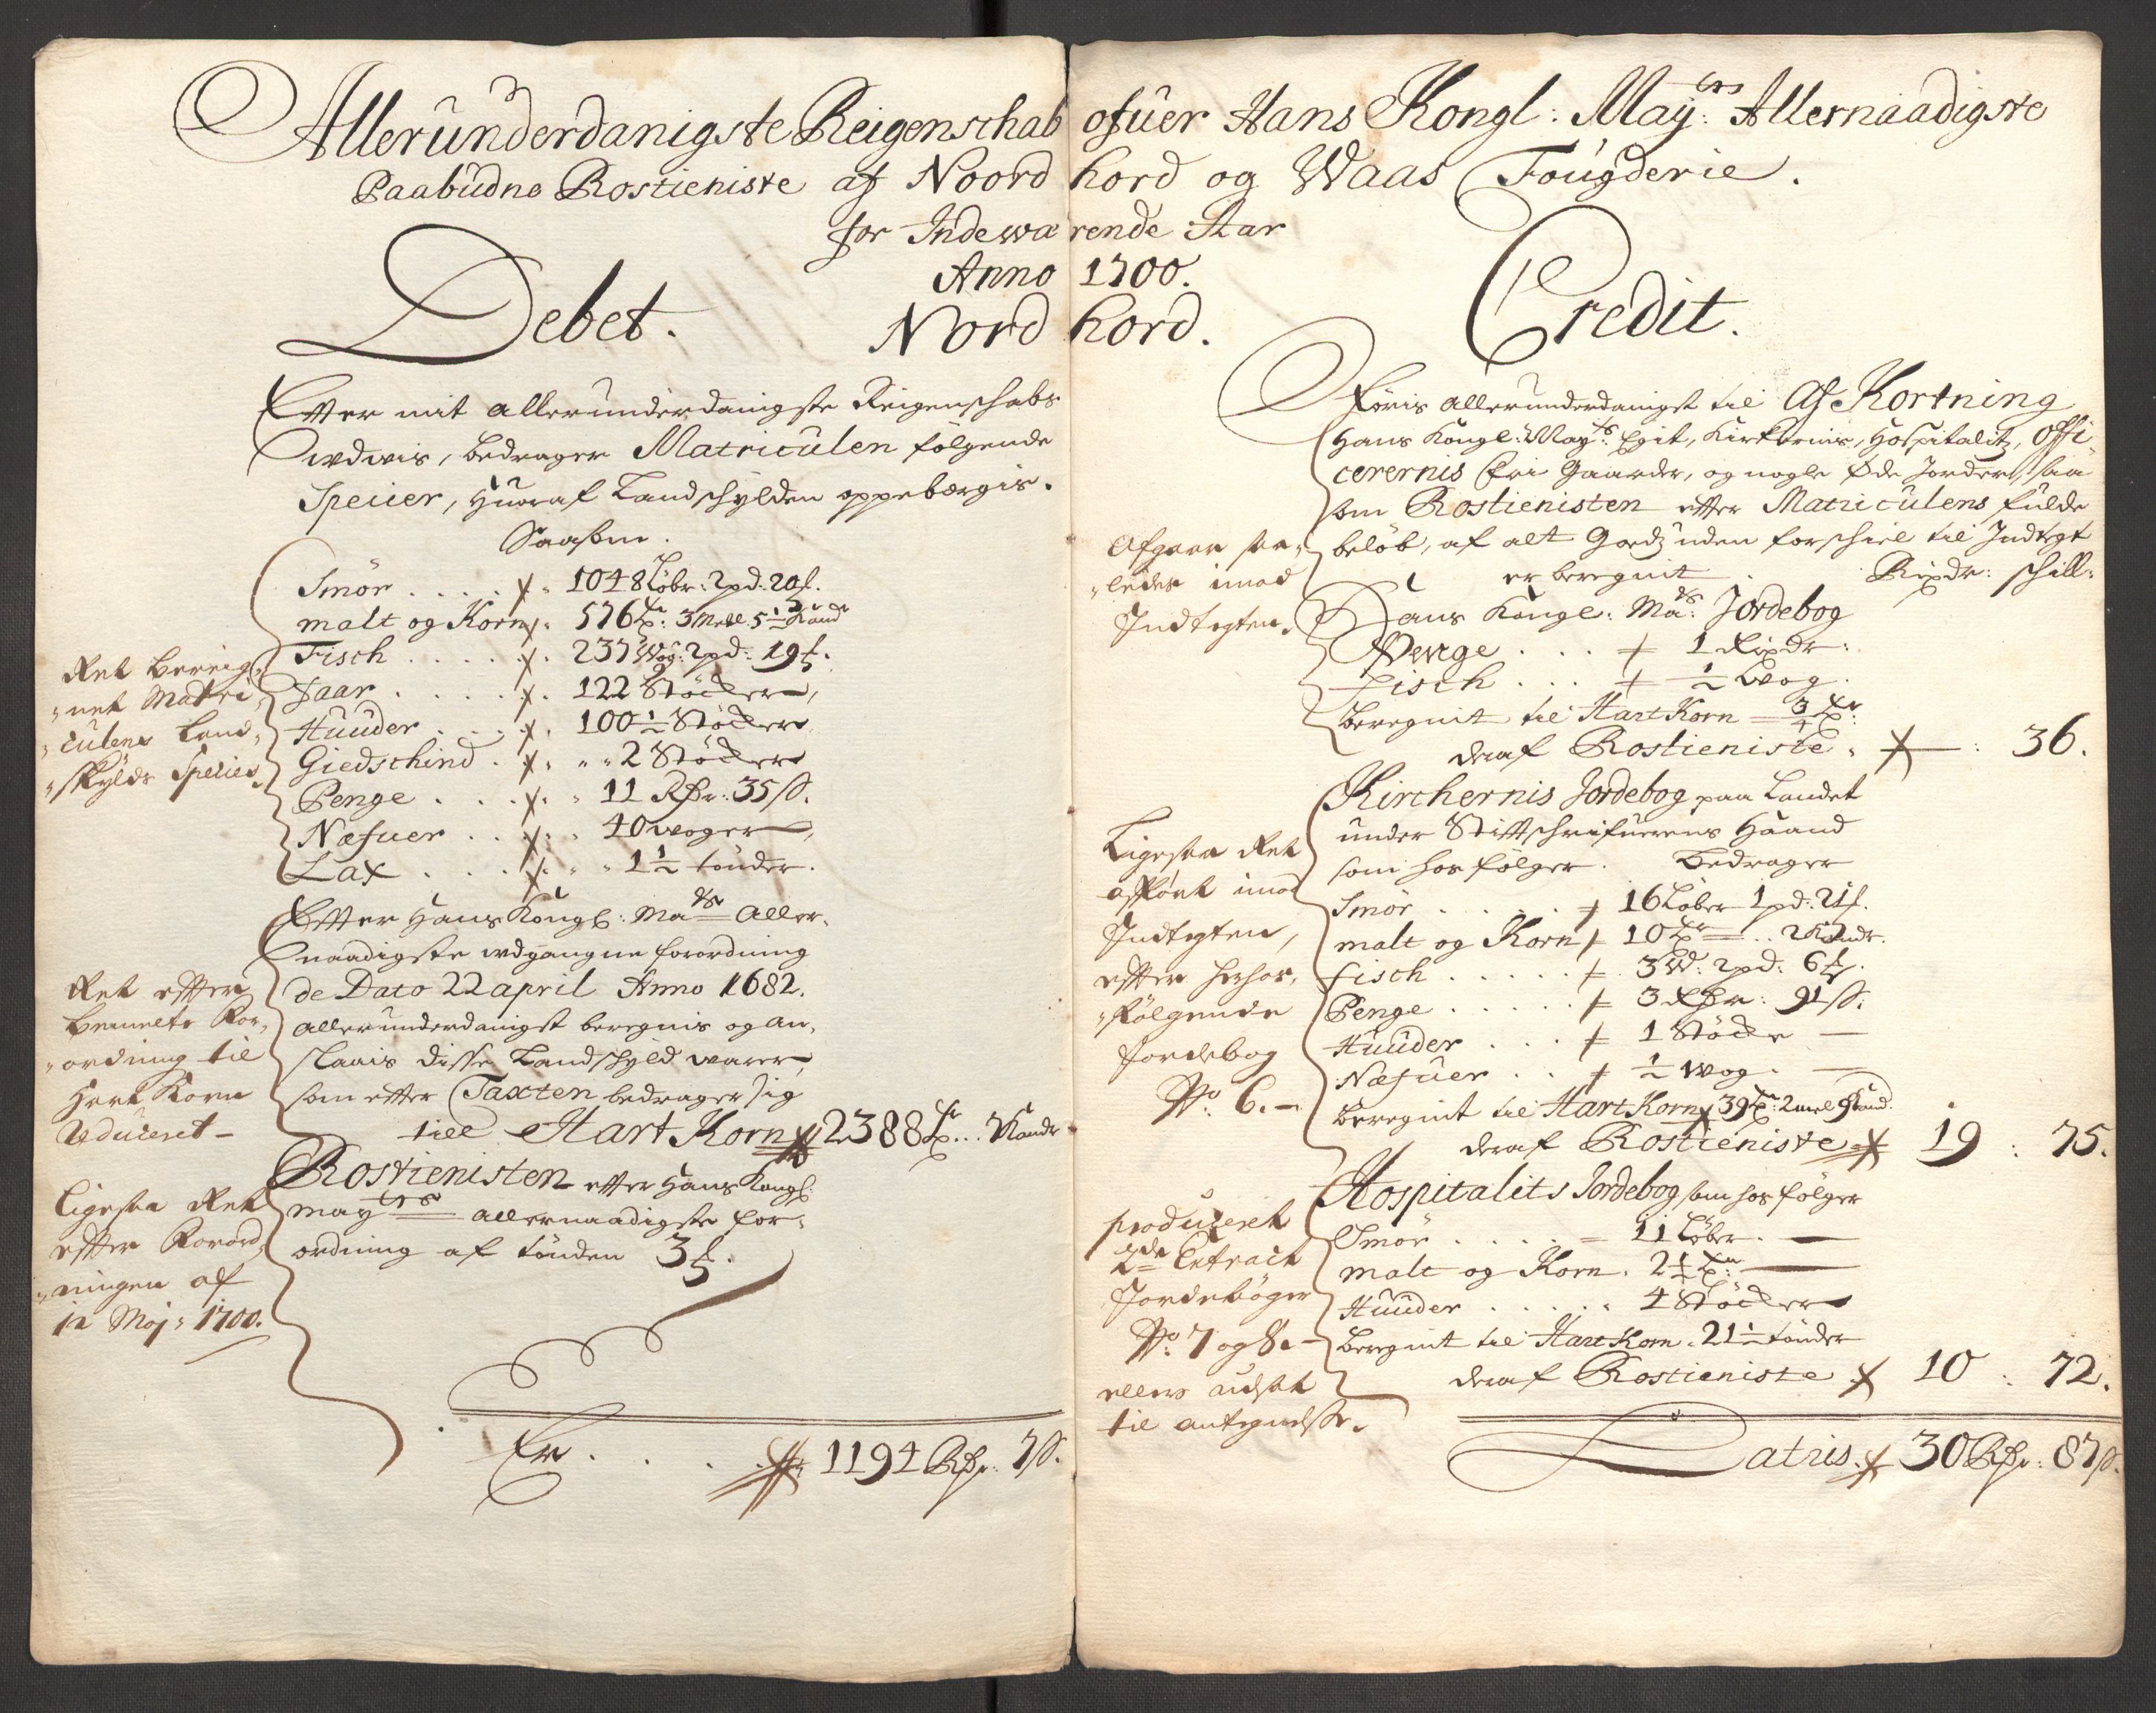 Allerunderdanigste Reigenschab ofuer Hans Kongl: May:ts Allernaadigste
Paabudne Rostieniste af Noord hord og Waas Fougderie.
for Indewærende Aar
Anno 1700.
Debet. Nord hord. Credit.
Efter mit allerunderdanigste Reigenschabs
udvis, bedrager Matriculen følgende
Speiier, huoraf Landschylden oppebærgis.
Saasom.
Smør .... 1048 Løbr: 2pd: 20 f.
malt og Korn 576 Tr: 3 Mele 5 1/2 Kand
Fisch ..... 237 Wog: 2pd: 19 f.
Faar ..... 122 Støcker,
Huuder .... 100 1/2 Støcker
Giedschind . " " 2 Støcker
Penge .... 11 Rdr: 35 s.
Næfuer ... 40 woger,
Lax .... 1 1/2 tønder.
Ret bereig-
"net Matri
"culens Land-
"skylds Specier
Efter Hans Kongl: Mats Aller-
naadigste udgangne forordning
de Dato 22 april Anno 1682.
allerunderdanigst beregnis og an-
slaais disse Landschyld warer,
som efter Taxten bedrager sig
till Hart Korn 2388 Tr .. 7 Kandr
Ret efter
bemelte For-
"ordning til
Hart Korn
reduceret -
Rostienisten efter Hans Kongl:
mayts allernaadigste for-
ordning af tønden 3 f.
ligesaa Ret
efter Forord-
"ningen af
12 Maj: 1700.
Er .... 1194 Rdr: 7 s.
Føris allerunderdanigst til Af Kortning
Hans Kongl: Mayts: Egit, Kirkernis, Hospitalitz, Offi
cerernis frie Gaarder, og nogle Øde Jorder, saa
som Rostienisten efter Matriculens fulde
beløb, af alt Godz uden forschiel til Indtegt
er beregnit. Rixdr: schill:
Afgaar saa-
"ledes imod
Indtegten.
Hans Kongl: Mats: Jordebog
Penge ... 1 Rixdr:
Fisch ... 1/2 wog.
beregnit til Hart Korn 3/4 Tr:
deraf Rostieniste. : 36.
Kirchernis Jordebog paa Landet
under Stiftschrifuerens Haand
som hos følger. bedrager
Smør ..... 16 Løber 1pd: 21 f.
malt og Korn 10 Tr .. 2 Kandr.
Fisch ..... 3 W: 2pd: 6 f.
Penge ..... 3 Rdr: 91 s.
Huuder .... 1 Støcke
Næfuer ... 1/2 wog.
beregnit til Hart Korn 39 Tr: 2 mel 9 Kand.
deraf Rostieniste 19 : 75.
Ligesaa Ret
afført imod
Indtegten,
efter herhos-
"følgende
Jordebog
No: 6. -
Hospitalits Jordebog som hos følger
Smør .... 11 Løber.
malt og Korn. 2 1/2 Tr:
Huuder ..... 4 Støcker
beregnit til Hart Korn. 21 1/2 tønder
deraf Rostieniste 10 : 72.
produceret
2de Extract
Jordebøger
No: 7 og 8. -
ellers udsat
til antegnelse.
Latris. 30 Rdr: 87 s.